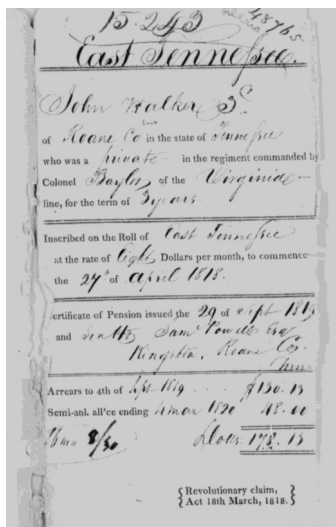 15.243
18765
East Tennessee.
John Walker 3d
of Roane Co in the state of Tennessee
who was a private in the regiment commanded by
Colonel Baylor of the Virginia
line, for the term of 3 years
Inscribed on the Roll of East Tennessee
at the rate of Eight Dollars per month, to commence
the 27th of April 1818.
ertificate of Pension issued the 29 of Sept 1819
and sent to Saml Powell Esq
Kingston, Roane Co.
Tenn
Arrears to 4th of Sept 1819 $130.13
Semi-anl. all'ce ending 4 Mar 1820 48.00
178.13
{Revolutionary claim,
Act 18th March, 1818.}